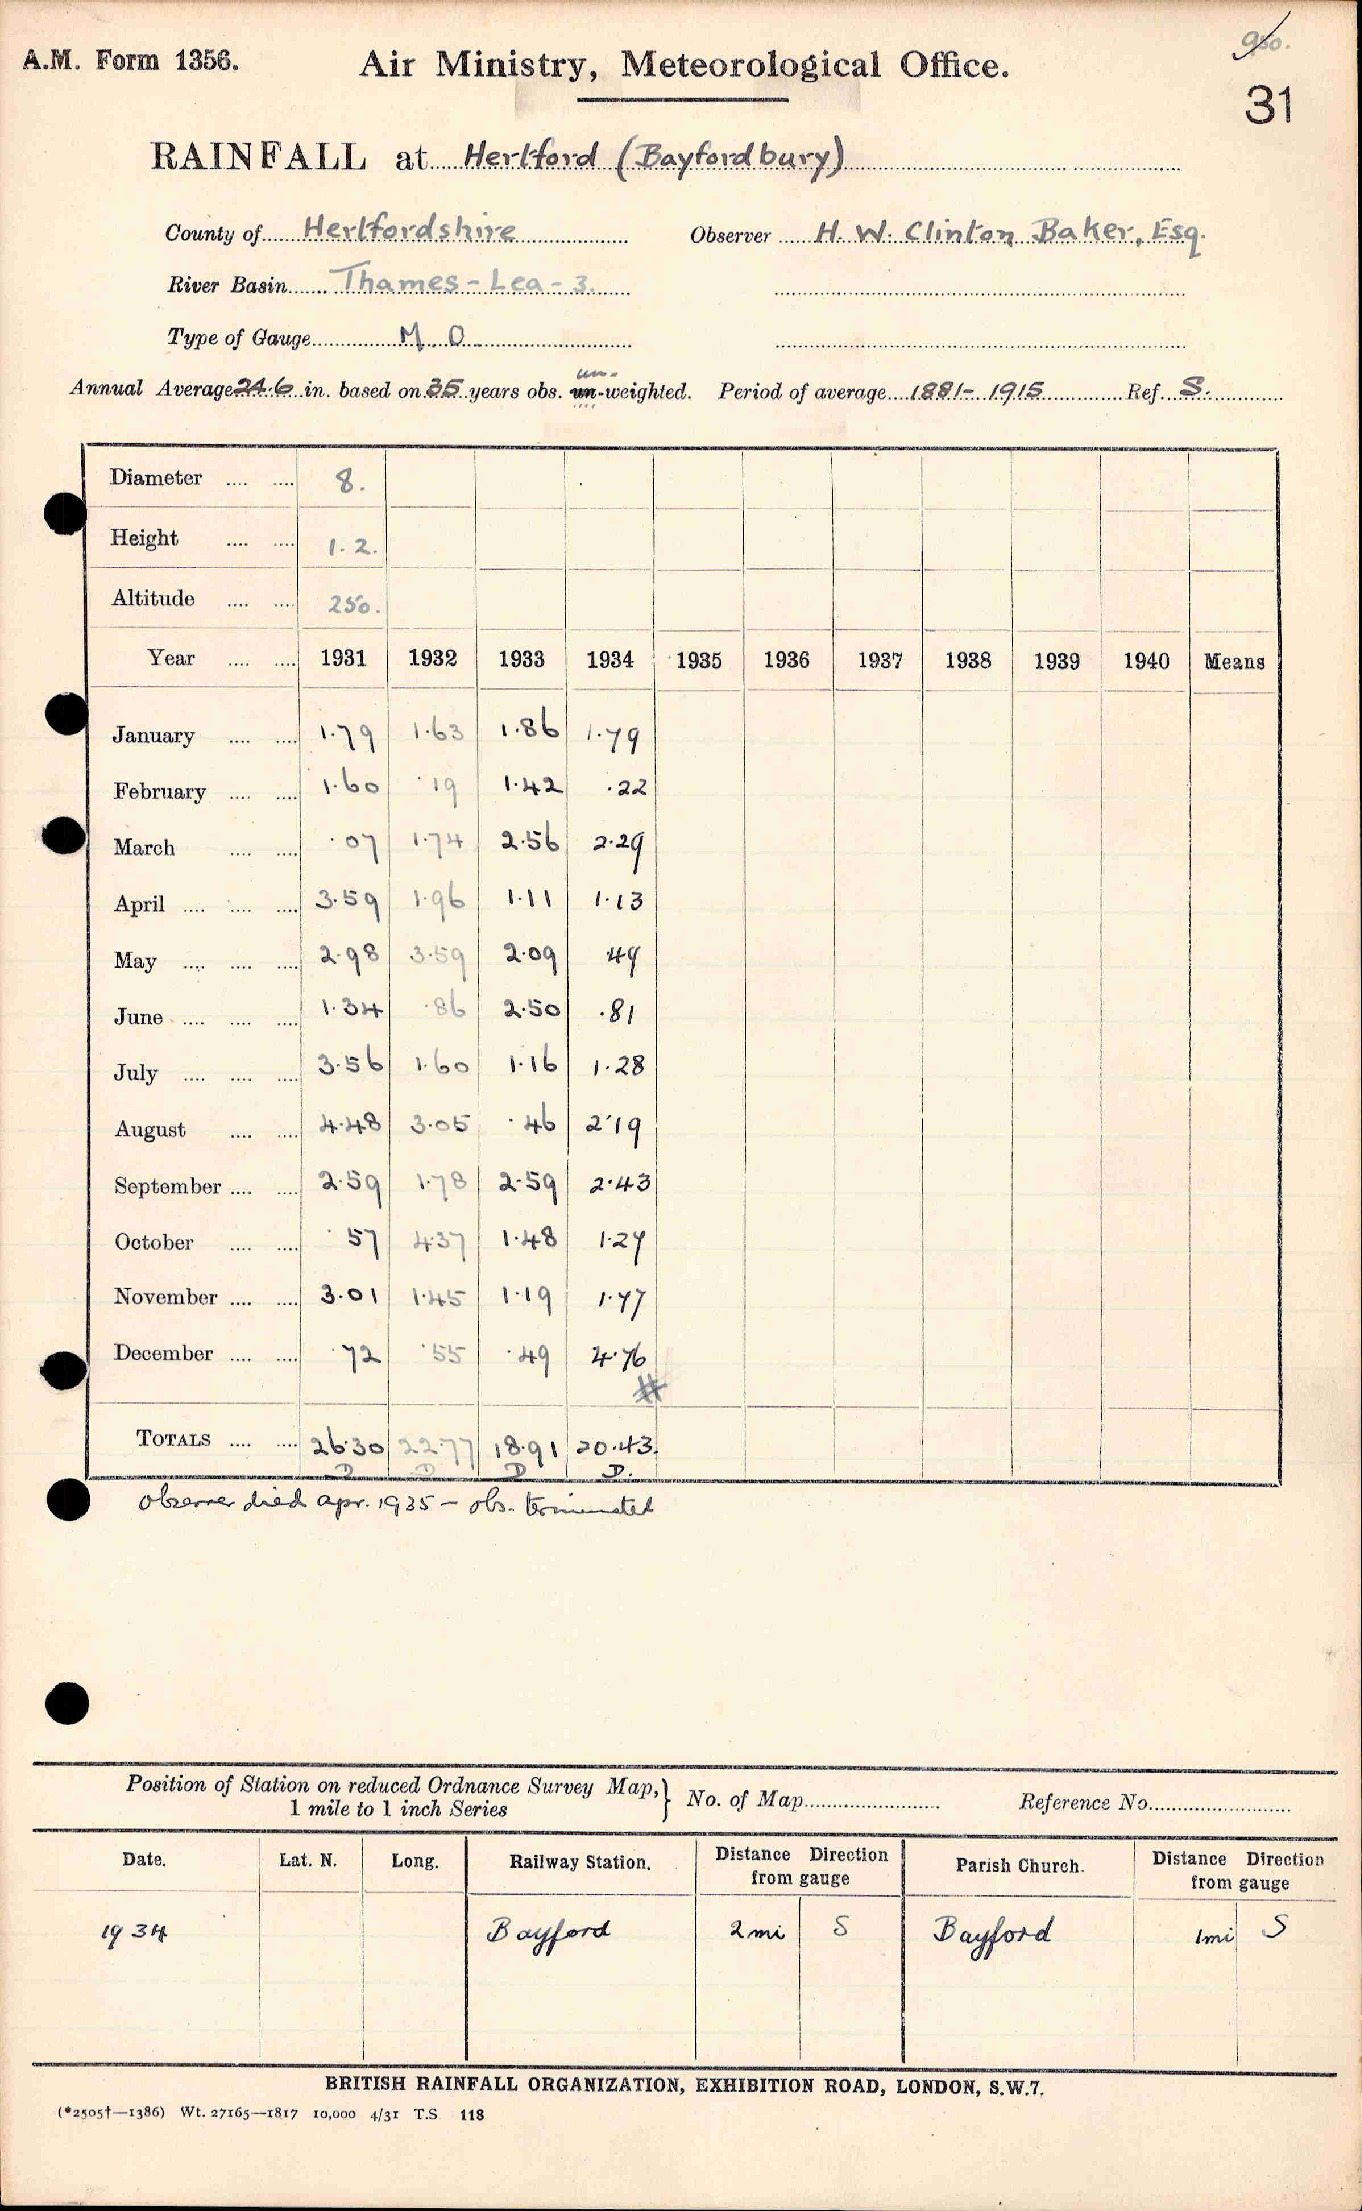 A.M. Form 1356. Air Ministry, Meteorological Office.
31
RAINFALL at Hertford (Bayfordbury)
County of Hertfordshire Observer H. W. Clinton Baker, Esq.
River Basin Thames - Lea - 3.
Type of Gauge M O
un-
Annual Average 24.6 in. based on 35 years obs. un-weighted. Period of average 1881-1915 Ref. S.
Diameter .... .... 8.
Height .... .... 1.2.
Altitude .... .... 250.
Year .... .... 1931 1932 1933 1934 1935 1936 1937 1938 1939 1940 Means
January .... .... 1.79 1.63 1.86 1.79
February .... .... 1.60 .19 1.42 .22
March .... .... .07 1.74 2.56 2.29
April .... .... .... 3.59 1.96 1.11 1.13
May .... .... .... 2.98 3.59 2.09 .49
June .... .... .... 1.34 .86 2.50 .81
July .... .... .... 3.56 1.60 1.16 1.28
August .... .... 4.48 3.05 .46 2.19
September .... .... 2.59 1.78 2.59 2.43
October .... .... .57 4.37 1.48 1.27
November .... .... 3.01 1.45 1.19 1.77
December .... .... .72 .55 .49 4.76
#
TOTALS .... .... 26.30 22.77 18.91 20.43.
D D D D.
Observer died Apr. 1935 - obs. terminated
Position of Station on reduced Ordnance Survey Map, 1 mile to 1 inch Series } No. of Map Reference No.
Date. Lat. N. Long. Railway Station. Distance Direction from gauge Parish Church. Distance Direction from gauge
1934 Bayford 2 mi S Bayford 1 mi S
BRITISH RAINFALL ORGANIZATION, EXHIBITION ROAD, LONDON, S.W.7.
(*2505†—1386) Wt. 27165—1817 10,000 4/31 T.S 118